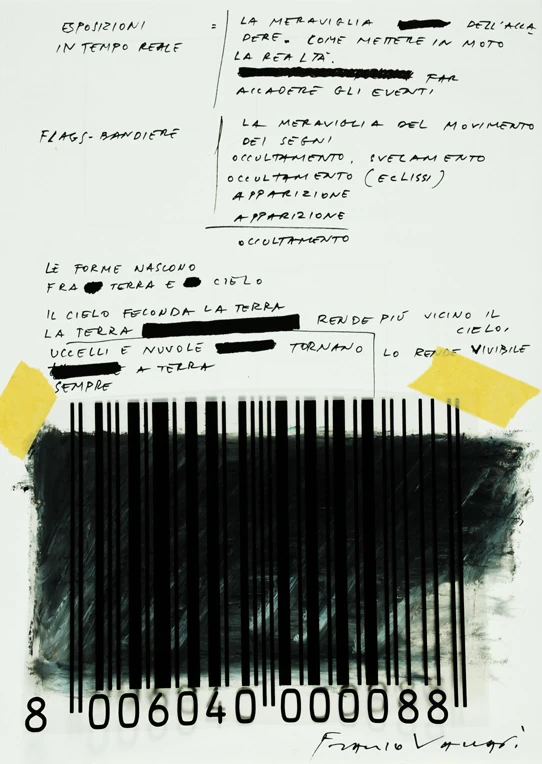 ESPOSIZIONI = LA MERAVIGLIA DELL'ACCA
IN TEMPO REALE DERE. COME METTERE IN MOTO
LA REALTÀ.
FAR
ACCADERE GLI EVENTI
FLAGS-BANDIERE LA MERAVIGLIA DEL MOVIMENTO
DEI SEGNI
OCCULTAMENTO, SVELAMENTO
OCCULTAMENTO (ECLISSI)
APPARIZIONE
APPARIZIONE
OCCULTAMENTO
LE FORME NASCONO
FRA TERRA E CIELO
IL CIELO FECONDA LA TERRA
LA TERRA RENDE PIÙ VICINO IL
CIELO,
UCCELLI E NUVOLE TORNANO LO RENDE VIVIBILE
A TERRA
SEMPRE
8 006040 000088
Franco Vaccari